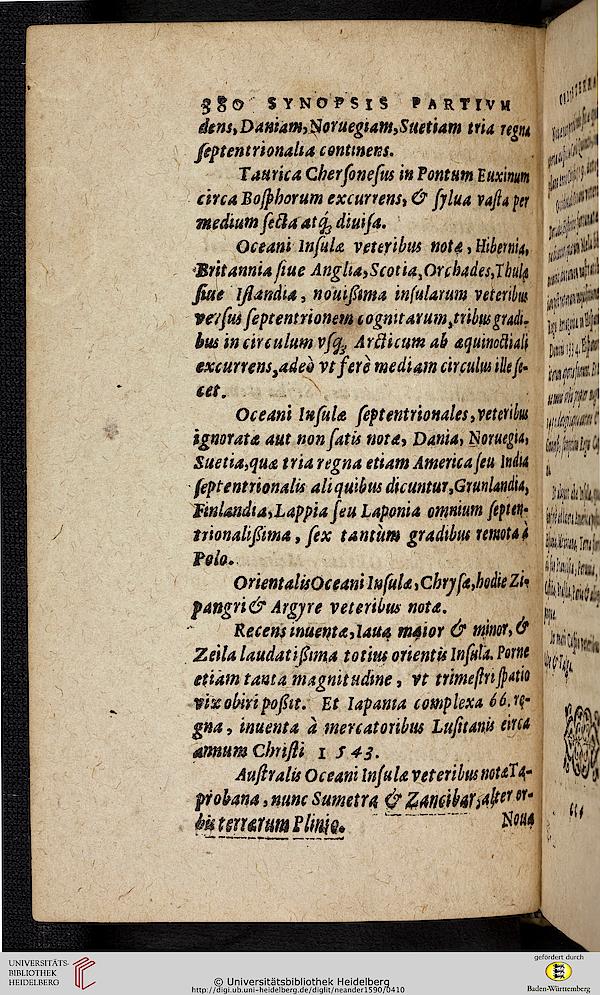 380 SYNOPSIS PARTIVM
dens, Daniam, Noruegiam, Suetiam tria regna
ſeptentrionalia continens.
Taurica Cherſoneſus in Pontum Euxinum
circa Boſphorum excurrens, & ſylua vaſta per
medium ſecta atq́; diuiſa.
Oceani Inſulæ veteribus notæ, Hibernia,
Britannia ſiue Anglia, Scotia, Orchades, Thula
ſiue Iſlandia, nouißima inſularum veteribus
verſus ſeptentrionem cognitarum, tribus gradi-
bus in circulum vſq́; Arcticum ab æquinoctiali
excurrens, adeò vt ferè mediam circulus ille ſe-
cet.
Oceani Inſulæ ſeptentrionales, veteribus
ignoratæ aut non ſatis notæ, Dania, Noruegia,
Suetia, quæ tria regna etiam America ſeu India
ſeptentrionalis aliquibus dicuntur, Grunlandia,
Finlandia, Lappia ſeu Laponia omnium ſepten-
trionalißima, ſex tantùm gradibus remota à
Polo.
Orientalis Oceani Inſulæ, Chryſæ, hodie Zi-
pangri & Argyre veteribus notæ.
Recens inuentæ, Iaua maior & minor, &
Zeila laudatißima totius orientis Inſula. Porne
etiam tanta magnitudine, vt trimeſtri ſpatio
vix obiri poßit. Et Iapania complexa 66. re-
gna, inuenta à mercatoribus Luſitanis circa
annum Chriſti 1543.
Auſtralis Oceani Inſulæ veteribus notæ Ta-
probana, nunc Sumetra & Zancibar, alter or-
bis terrarum Plinio.
Noua
UNIVERSITÄTS-
BIBLIOTHEK
HEIDELBERG
© Universitätsbibliothek Heidelberg
http://digi.ub.uni-heidelberg.de/diglit/neander1590/0410
gefördert durch
Baden-Württemberg